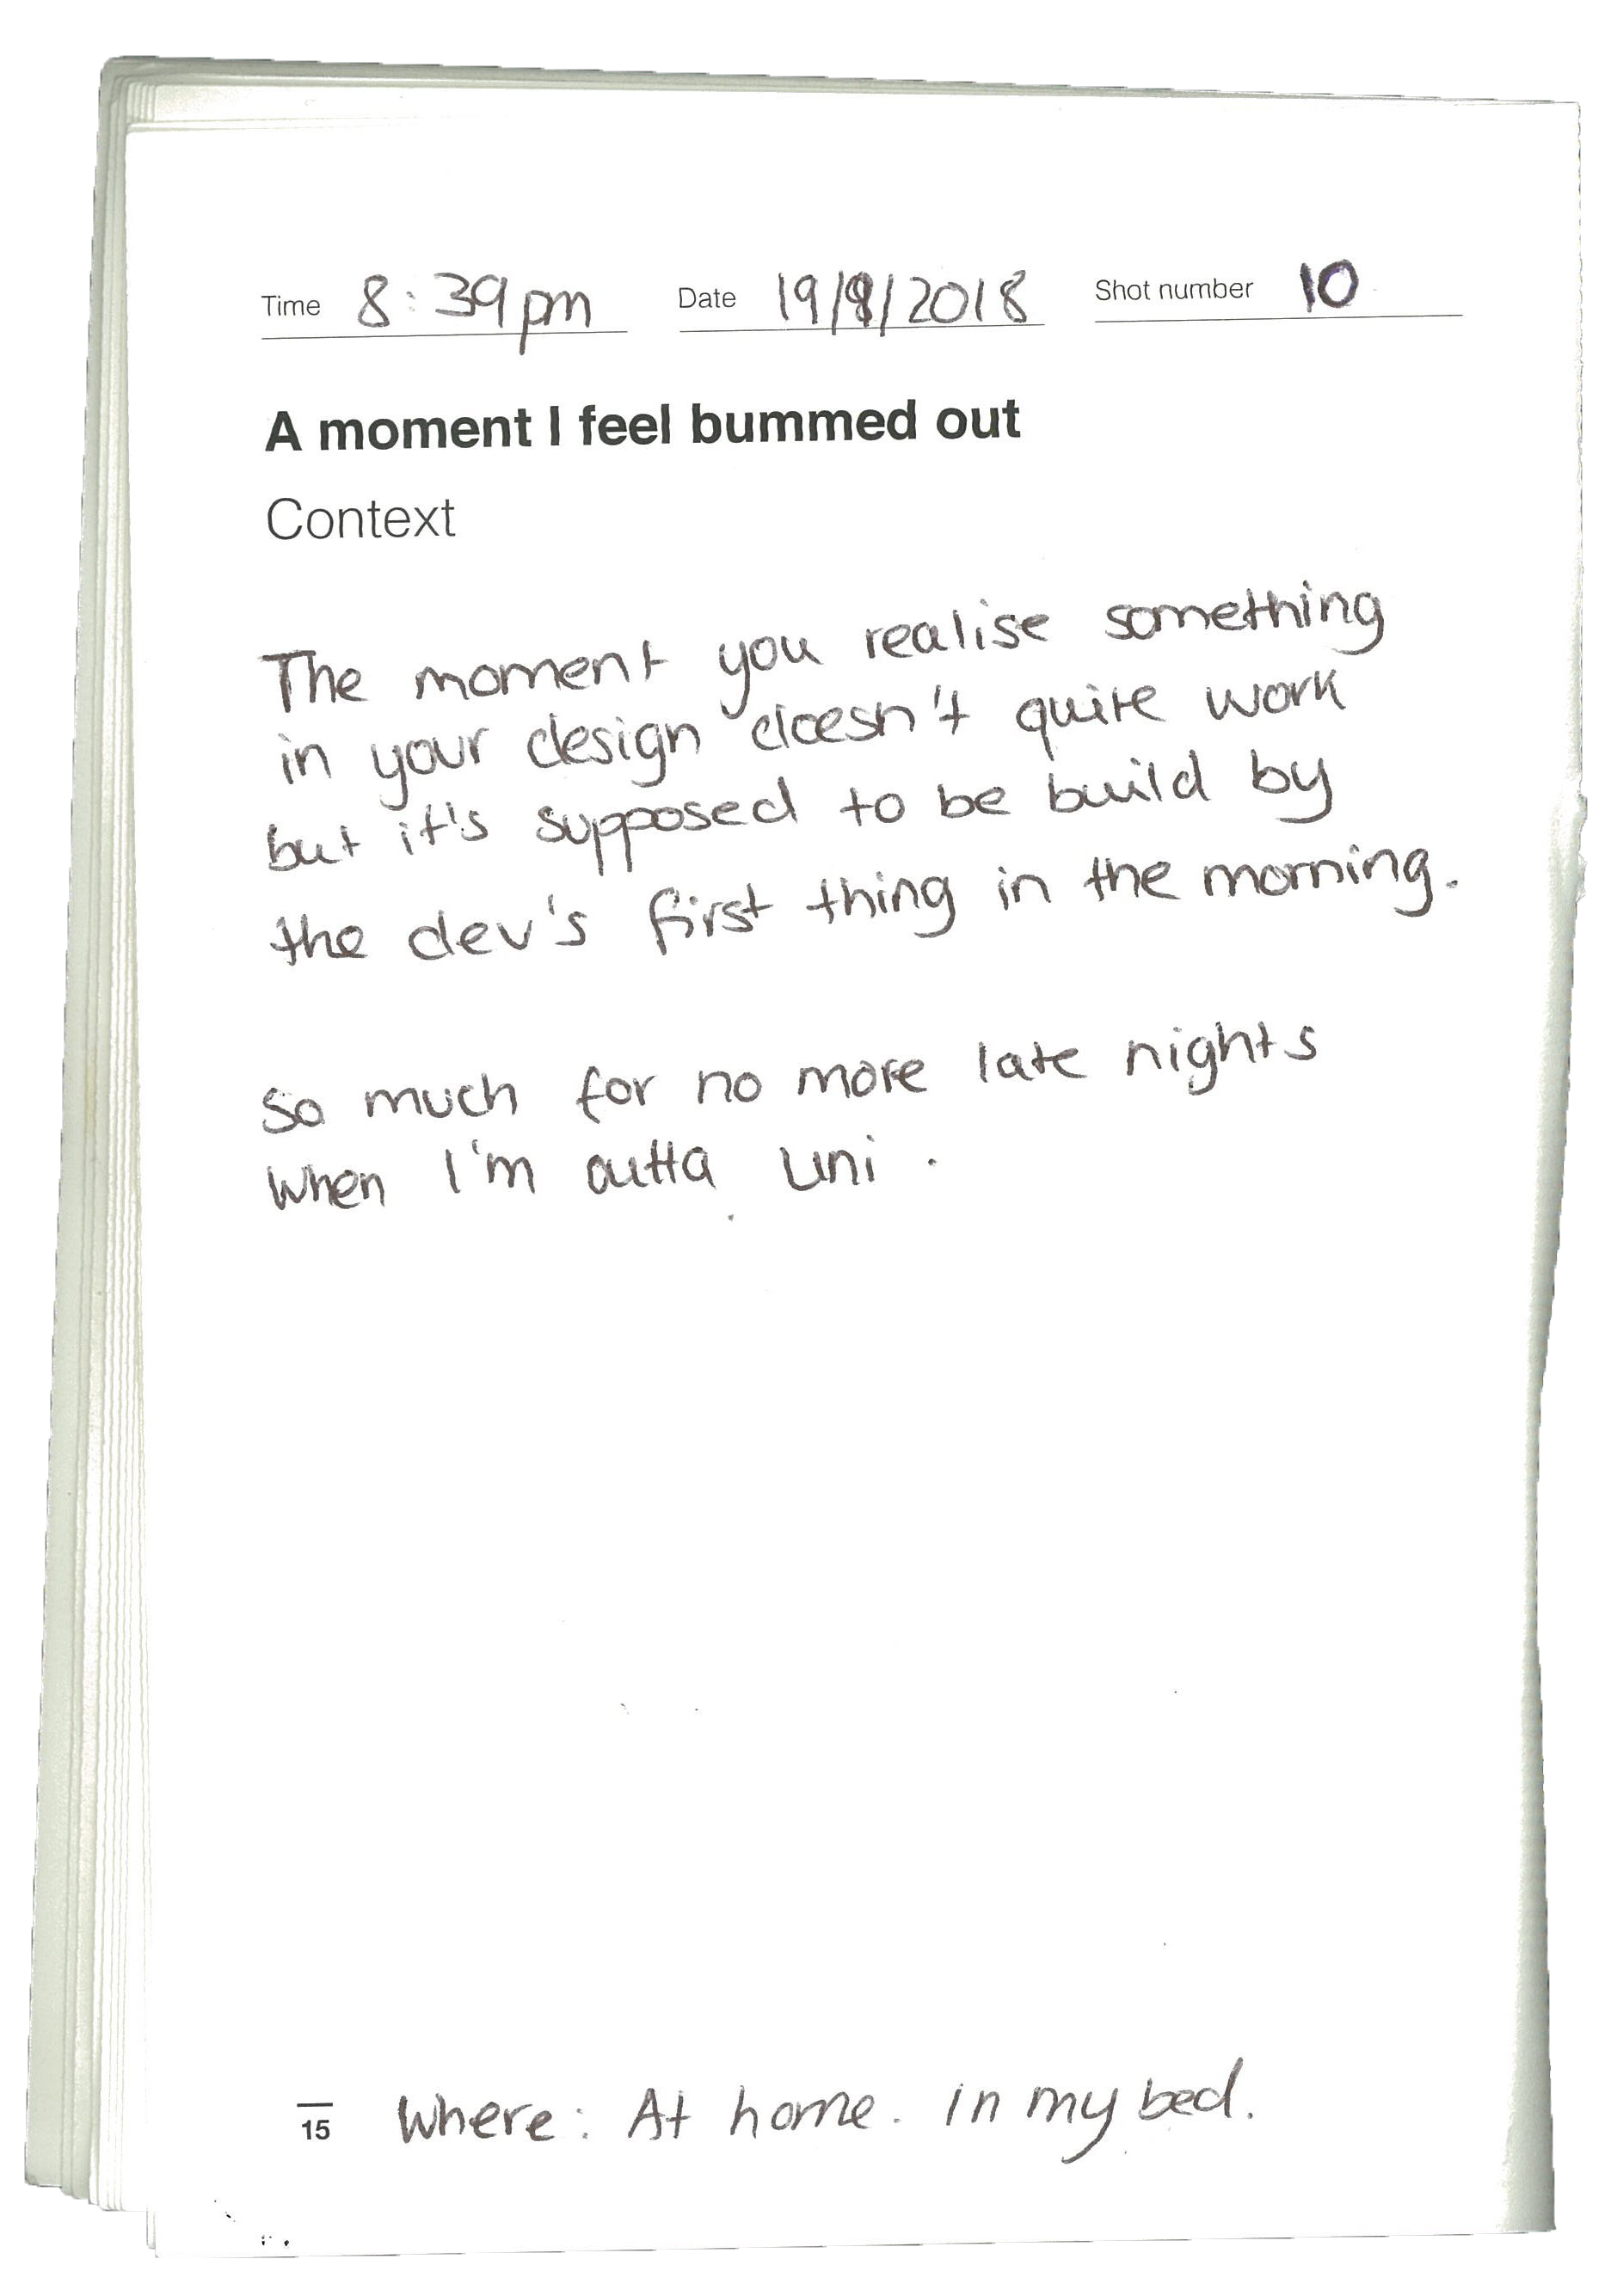 Time 8:39pm Date 19/9/2018 Shot number 10
A moment I feel bummed out
Context
The moment you realise something
in your design doesn't quite work
but it's supposed to be build by
the dev's first thing in the morning.
So much for no more late nights
when I'm outta uni.
15 Where: At home. in my bed.